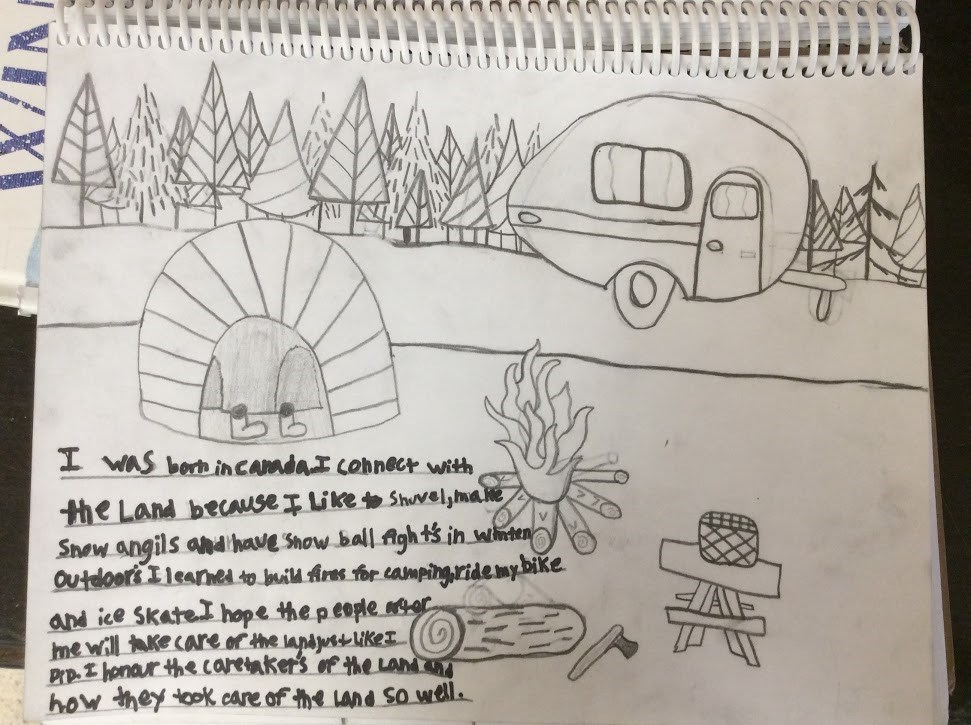 I was born in canada. I connect with
the Land because I Like to Shuvel, make
Snow angils and have Snow ball fight's in winter
outdoor's I learned to build fires for camping, ride my bike
and ice skate. I hope the people after
me will take care of the land just like I
DID. I honour the caretaker's of the Land and
how they took care of the Land so well.